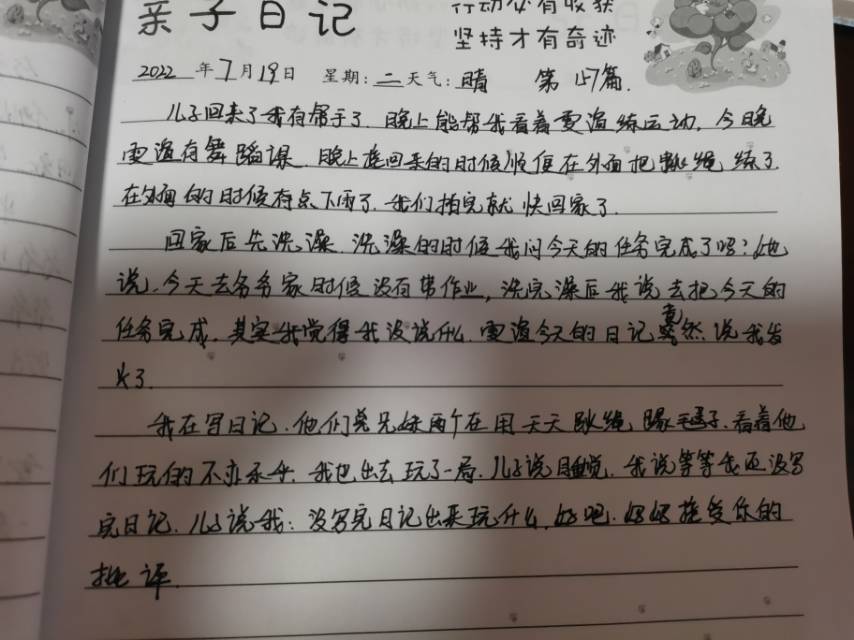 亲子日记
行动必有收获
坚持才有奇迹
2022年7月19日 星期:二 天气:晴 第157篇.
儿子回来了我有帮手了.晚上能帮我看着雯滋练运动,今晚
雯滋有舞蹈课.晚上接回来的时候顺便在外面把跳绳练了.
在外面的时候有点下雨了.我们拍完就快回家了.
回家后先洗澡.洗澡的时候我问今天的任务完成了吗?她
说.今天去爷爷家时候没有带作业,洗完澡后我说去把今天的
任务完成,其实我觉得我没说什么.雯滋今天的日记竟然说我发
火了.
我在写日记.他们兄妹两个在用天天跳绳踢毽子.看着他
们玩的不亦乐乎.我也出去玩了一局.儿子说睡觉.我说等等我还没写
完日记.儿子说我:没写完日记出来玩什么,好吧.好好接受你的
批评.